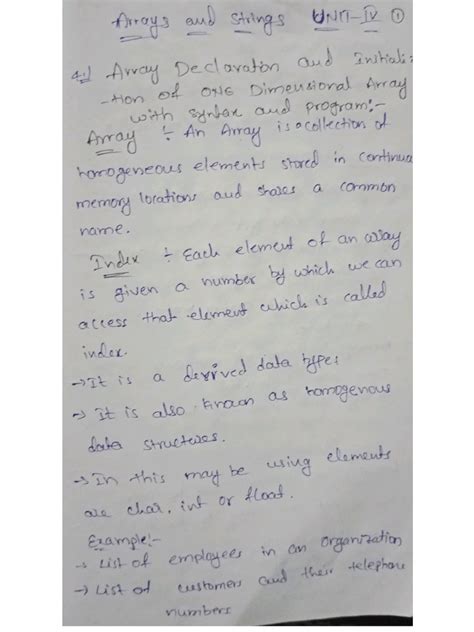 Arrays and Strings UNIT-IV ①
4.1) Array Declaration and Initiali-
-tion of one Dimensional Array
with syntax and program:-
Array :- An Array is a collection of
homogeneous elements stored in continua
memory locations and shares a common
name.
Index :- Each element of an array
is given a number by which we can
access that element which is called
index.
→ It is a derived data types
→ It is also known as homogenous
data structures.
→ In this may be using elements
are char, int or float.
Example:-
→ List of employees in an organization
→ List of customers and their telephone
numbers